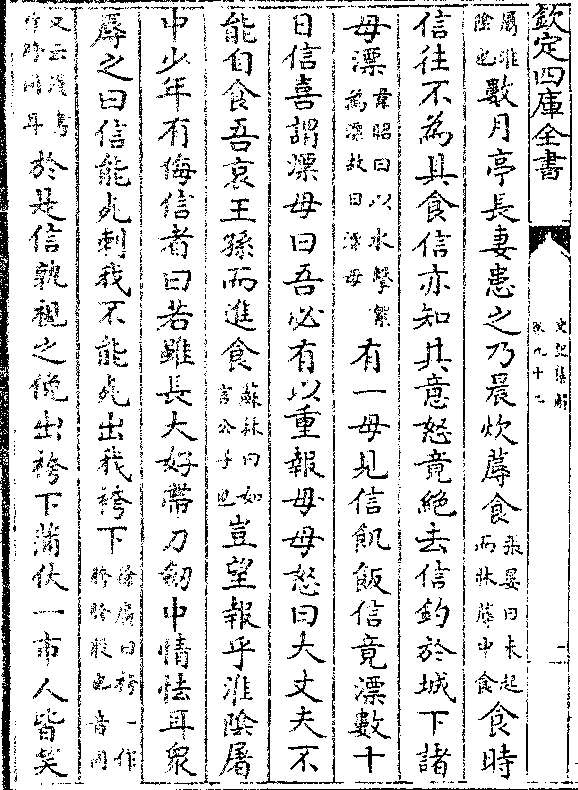 欽定四庫全書
史記集解
卷九十二
二
屬淮陰也數月亭長妻患之乃晨炊蓐食張晏曰未起而牀蓐中食食時
信往不為具食信亦知其意怒竟絶去信釣於城下諸
母漂韋昭曰以水擊絮為漂故曰漂母有一母見信飢飯信竟漂數十
日信喜謂漂母曰吾必有以重報母母怒曰大丈夫不
能自食吾哀王孫而進食蘇林曰如言公子也豈望報乎淮隂屠
中少年有侮信者曰若雖長大好帶刀劒中情怯耳衆
辱之曰信能死刺我不能死出我袴下徐廣曰袴一作胯胯股也音同
又云漢書作跨同耳於是信孰視之俛出袴下蒲伏一市人皆笑